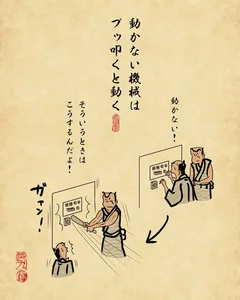 動かない機械は
ブッ叩くと動く
動かない!
そういうときは
こうするんだよ!
ガァン!!